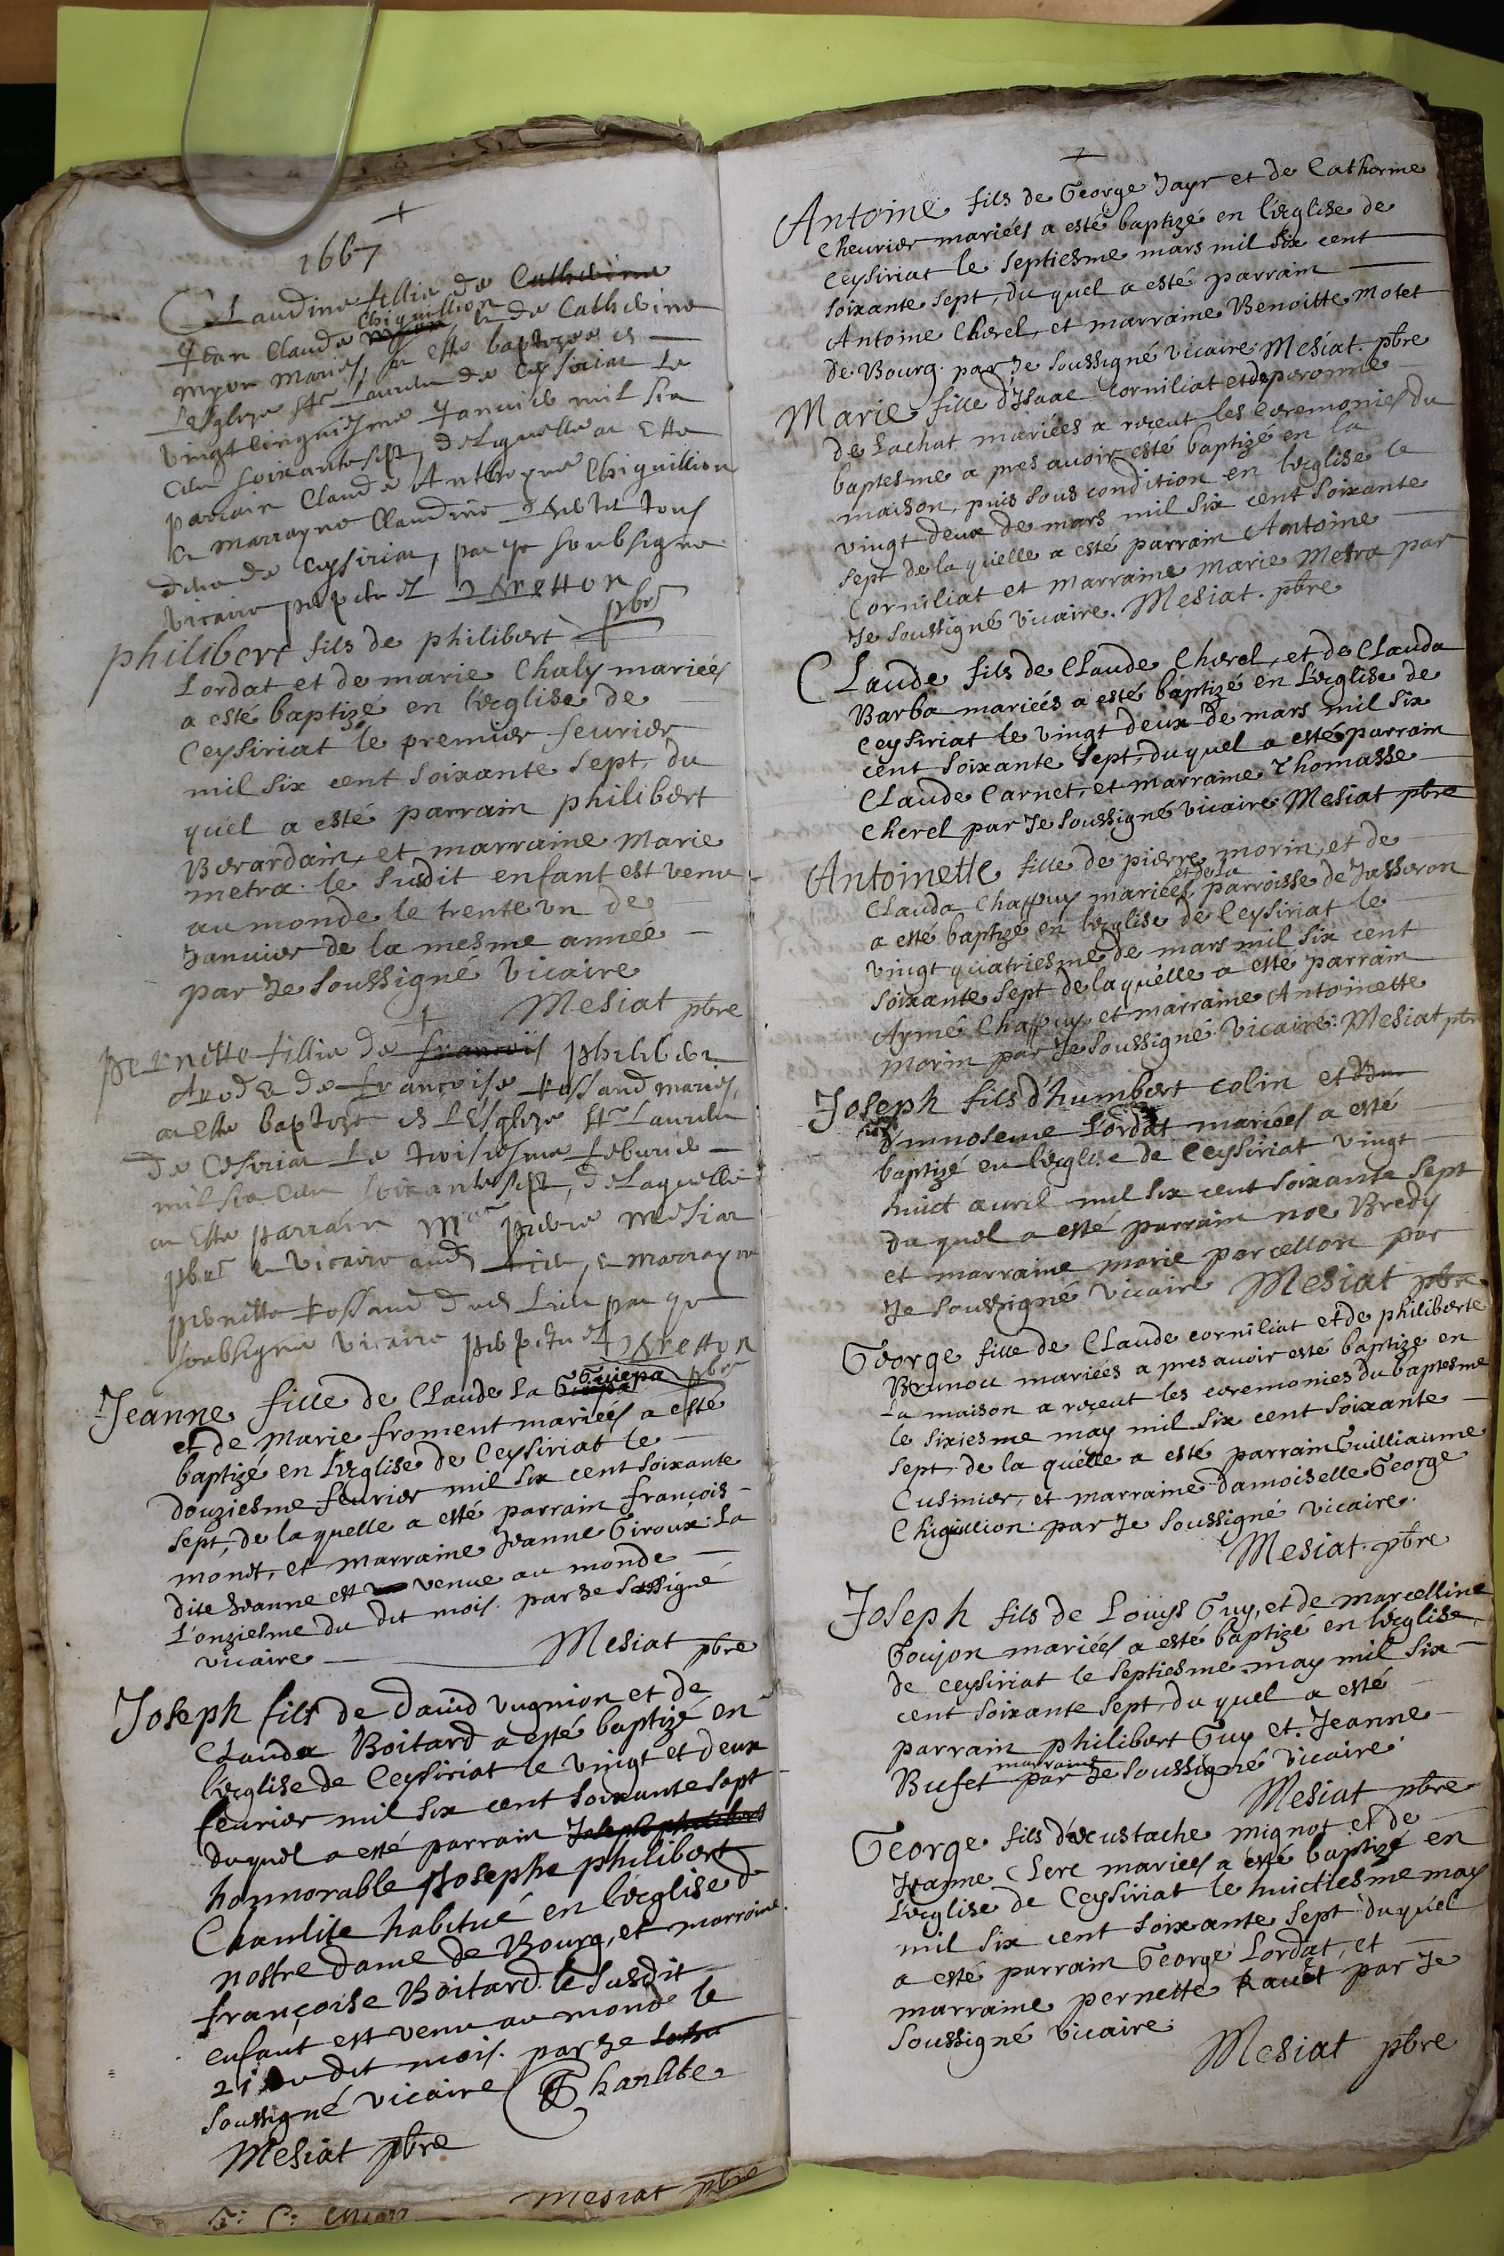 +
1667
Claudine fillie de Catherine
Chiguillion
Jean Claude et de Catherine
myon mariés, a esté baptizee en
Lesglize St Laurent de Ceyseriat Le
vingtcinquiesme Janvier mil six
cent soixantesept, de Laquelle a Esté
parrain Claude Anthoyne Chiguillion
et marrayne Claudine tous
de Ceyseriat, par Je soubsigné
vicaire perpetuel
pbre
philibert fils de philibert
Lordat et de marie Chaly mariés
a esté baptizé en l'eglise de
Ceysiriat le premier feurier
mil six cent soixante sept, du
quel a esté parrain philibert
Berardain, et marraine Marie
metra. le susdit enfant est venu
au monde le trente un de
Januier de la mesme année
par Je soussigné Vicaire
Mesiat pbre
+
pernette fillie de françois philibert
et de françoise Possand mariés,
a esté baptizé en L'Esglize St Laurent
de Ceseriat Le troisiesme feburier
mil six cent soixantesept, de Laquelle
a Esté parrain Mre pierre mesiat
pbre et vicaire aud Lieu, et marrayne
pernette Possand dud Lieu par Je
soubsigné vicaire perpetuel
pbre
Guiepa
Jeanne fille de Claude La Guiepa
et de Marie froment mariéés a esté
baptizé en l'eglise de Ceysiriat le
douziesme feurier mil six cent soixante
sept, de la quelle a esté parrain françois
monet, et marraine Jeanne Giroux: La
dite Jeanne est venue au monde
L'onziesme du dit mois. par Je sossigné
vicaire
Mesiat pbre
Joseph fils de dauid vugnion et de
Clauda Boitard a esté baptizé en
l'eglise de Ceysiriat le vingt et deux
feurier mil six cent soixante sept
duquel a esté parrain Joseph philibert
honnorable Josephe philibert
Chanlite habitué en l'eglise d
nostre dame de Bourg, et marraine
françoise Boitard. le susdit
enfant est venu au monde le
21 du dit mois. par Je
soussigné vicaire Chanlite
Mesiat pbre
Mesiat pbre
+
Antoine fils de George Jayr et de Catherine
Cheurier mariéés a esté baptizé en l'eglise de
Ceysiriat le septiesme mars mil six cent
soixante sept, du quel a esté parrain
Antoine Cherel, et marraine Benoitte Motet
de Bourg. par Je soussigné vicaire: Mesiat. pbre
Marie fille d'Isaac Corniliat et de peronne
de Lachat mariéés a receut les ceremonies du
baptesme a pres avoir esté baptizé en la
maison, puis sous condition en l'eglise le
vingt deux de mars mil six cent soixante
sept de la quelle a esté parrain Antoine
Corniliat et marraine Marie Metra par
Je soussigné vicaire. Mesiat. pbre
Claude fils de Claude Cherel, et de Clauda
Barba mariéés a esté baptizé en L'eglise de
Ceysiriat le vingt deux de mars mil six
cent soixante sept, du quel a esté parrain
Claude Carnet, et marraine Thomasse
Cherel par Je soussigné vicaire Mesiat pbre
Antoinette fille de pierre morin, et de
et de La
Clauda Chappuy mariéés parroisse de Jasseron
a esté baptizé en l'eglise de Ceysiriat le
vingt quatriesme de mars mil six cent
soixante sept de la quelle a esté parrain
Aymé Chappuy, et marraine Antoinette
Morin par Je soussigné vicaire: Mesiat pbre
Joseph fils d'humbert colin et
d'innosence Lordat mariéés a esté
baptizé en l'eglise de Ceysiriat vingt
huict auril mil six cent soixante sept
du quel a esté parrain noe Bredy
et marraine marie porcellon par
Je soussigné vicaire Mesiat pbre
George fille de Claude corniliat et de philiberte
Brunou mariéés a pres auoir esté baptizé en
La maison a receut les ceremonies du baptesme
le sixiesme may mil six cent soixante
sept de la quelle a esté parrain Guilliaume
Cusinier, et marraine damoiselle George
Chiguillion: par Je soussigné vicaire.
Mesiat. pbre
Joseph fils de Louys Guy, et de marcelline
Goujon mariéés a esté baptizé en l'eglise
de ceysiriat le septiesme may mil six
cent soixante sept, du quel a esté
parrain philibert Guy et Jeanne
marraine
Bufet par Je soussigné vicaire.
Mesiat pbre
George fils d'eustache mignot et de
Jeanne Clerc mariéés a esté baptizé en
L'eglise de Ceysiriat le huictiesme may
mil six cent soixante sept duquel
a esté parrain George Lordat, et
marraine pernette Rauet par Je
soussigné vicaire.
Mesiat pbre